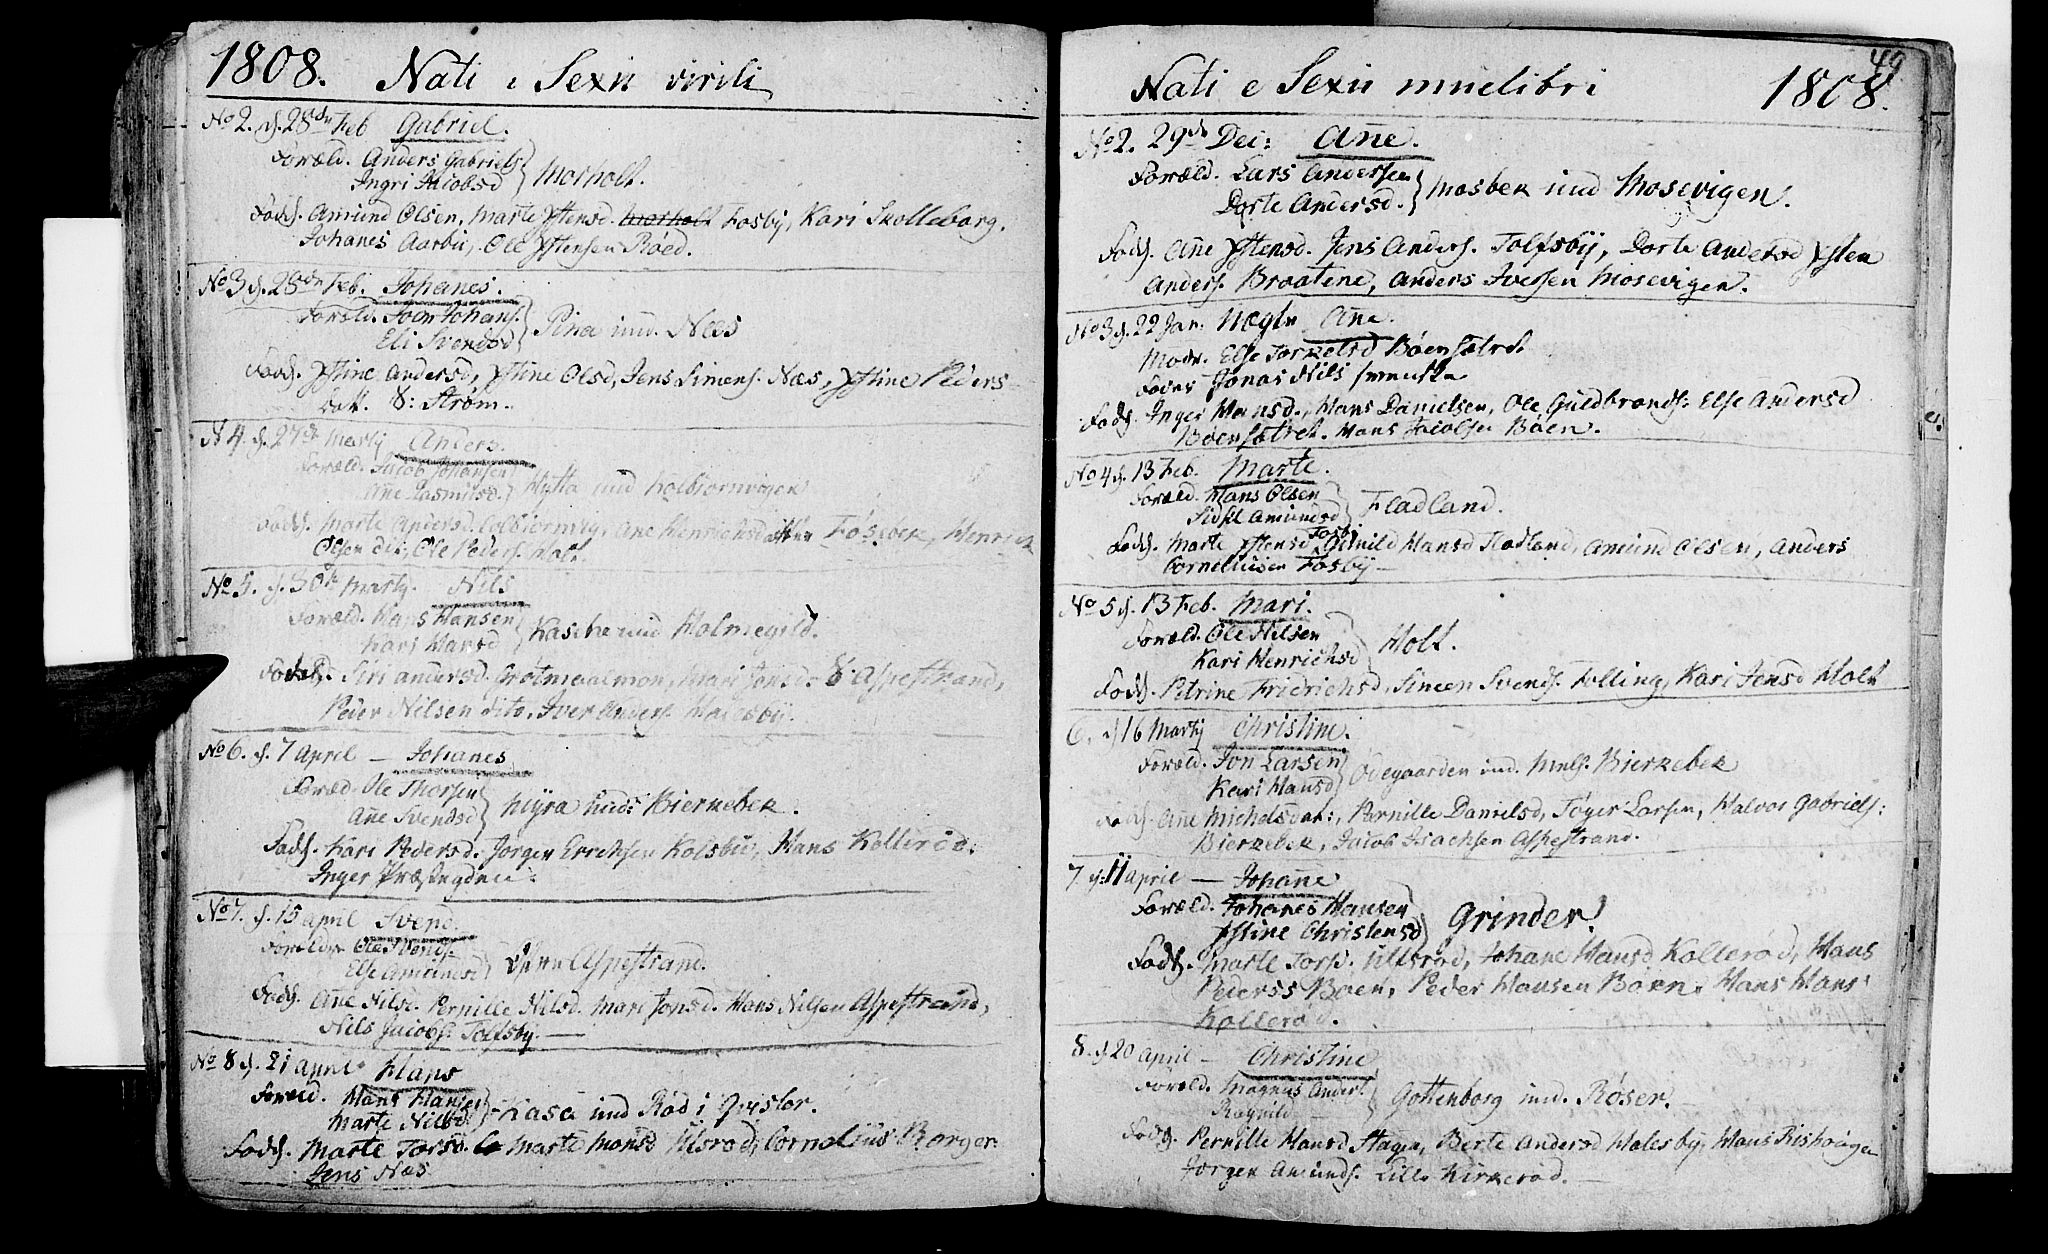 1808. Nati e Sexu virili
No 2. d. 28de Feb Gabriel.
Foræld. Anders Gabriels
Ingri Jacobsd } Morholt.
Fadd. Amund Olsen, Marte Ystensd. Morholt Fosby, Kari Skolleborg.
Johanes Aarbu, Ole Ystensen Röed.
No 3 d. 28de Feb. Johanes.
Foræld. Joen Johans.
Eli Svendsd } Pina und. Næs
Fadd. Ystine Andersd, Ystine Olsd, Jens Simens. Næs, Ystine Peders
datt. Ström.
4. d. 27de Martij Anders.
Foræld. Jacob Johansen
Añe Rasmusd. } Hytta und
Fadd. Marte Andersd. Ane Henrichsd Henrick
Olsen dito, Ole Peders. Holt.
No 5. d. 30te Martij. Nils
Foræld. Hans Hansen
Kari Hansd } und Holmegild.
Fadd. Siri Andersd. Mari Jonsd. Aspestrand,
Peder Nilsen dito, Iver Anders. Halesby.
No 6. d. 7 April - Johanes
Foræld. Ole Thorsen
Añe Svendsd } Myra und: Bierkebek.
Fadd. Kari Pedersd. Jörgen Erichsen Kolsbu, Hans Kolleröd.
Inger
No 7. d. 15 April Svend.
Foræld Ole Svends.
Else Amundsd } Aspestrand.
Fadd. Añe Nilsd. Pernille Nilsd. Mari Jonsd. Hans Nilsen Aspestrand,
Nils Jacobs. Tolfsby. —
No 8 d. 21 April Hans
Foræld. Hans Hansen
Marte Nilsd. } Kasa und Röd i Qvisler.
Fadd. Marte Torsd. Marte Monsd Ulsröd, Cornelius Borger
Jens Næs
49
Nati e Sexu muelibri 1808.
No 2. 29de Dec: Añe.
Foræld. Lars Andersen
Dorte Andersd. } Mosbek und Mosevigen.
Fadd. Añe Ystensd. Jens Anders. Tolfsby, Dorte Andersd Ysten
Anders. Braatene, Anders Iversen Mosevigen.
No 3 d. 22 Jan: Uægte Añe.
Modr. Else Torkelsd Böensætret
Fader Jonas Nils svenske
Fadd. Inger Hansd., Hans Danielsen, Ole Guldbrands: Else Andersd
Böensætret. Hans Jacobsen Böen.
No 4 d. 13 Feb. Marte.
Foræld. Hans Olsen
Sidsel Amundsd } Fladland.
Fadd. Marte Ystensd Fosby, Gunild Hansd Fladland, Amund Olsen, Anders
Corneliusen Fosby —
No 5 d. 13 Feb. Mari.
Foræld. Ole Nilsen
Kari Henrichsd } Holt.
Fadd. Petrine Fridrichsd, Simeen Svends. Folling, Kari Jensd Holt
6. d 16 Martij Christine.
Foræld. Jon Larsen
Kari Hansd } Ödegaarden und. Bierkebek
Fadd. Añe Michelsdat:, Pernille Danielsd, Töger Larsen, Halvor Gabriels:
Bierkebek, Jacob Isachsen Aspestrand.
7. d. 11 April — Johañe
Foræld. Johanes Hansen
Ystine Christensd } Grinder!
Fadd. Marte Torsd. Ulsröd, Johane Hansd Kolleröd, Hans
Pederss Böen, Peder Hansen Böen, Hans Hans:
Kolleröd.
8. d. 20 April — Christine
Foræld. Magnus Anders.
Ragnild — } Gottenborg und. Röser. —
Fadd. Pernille Hansd Hagen, Berte Andersd Halesby, Hans Rishougen
Jörgen Amunds. Lille Kirkeröd. —